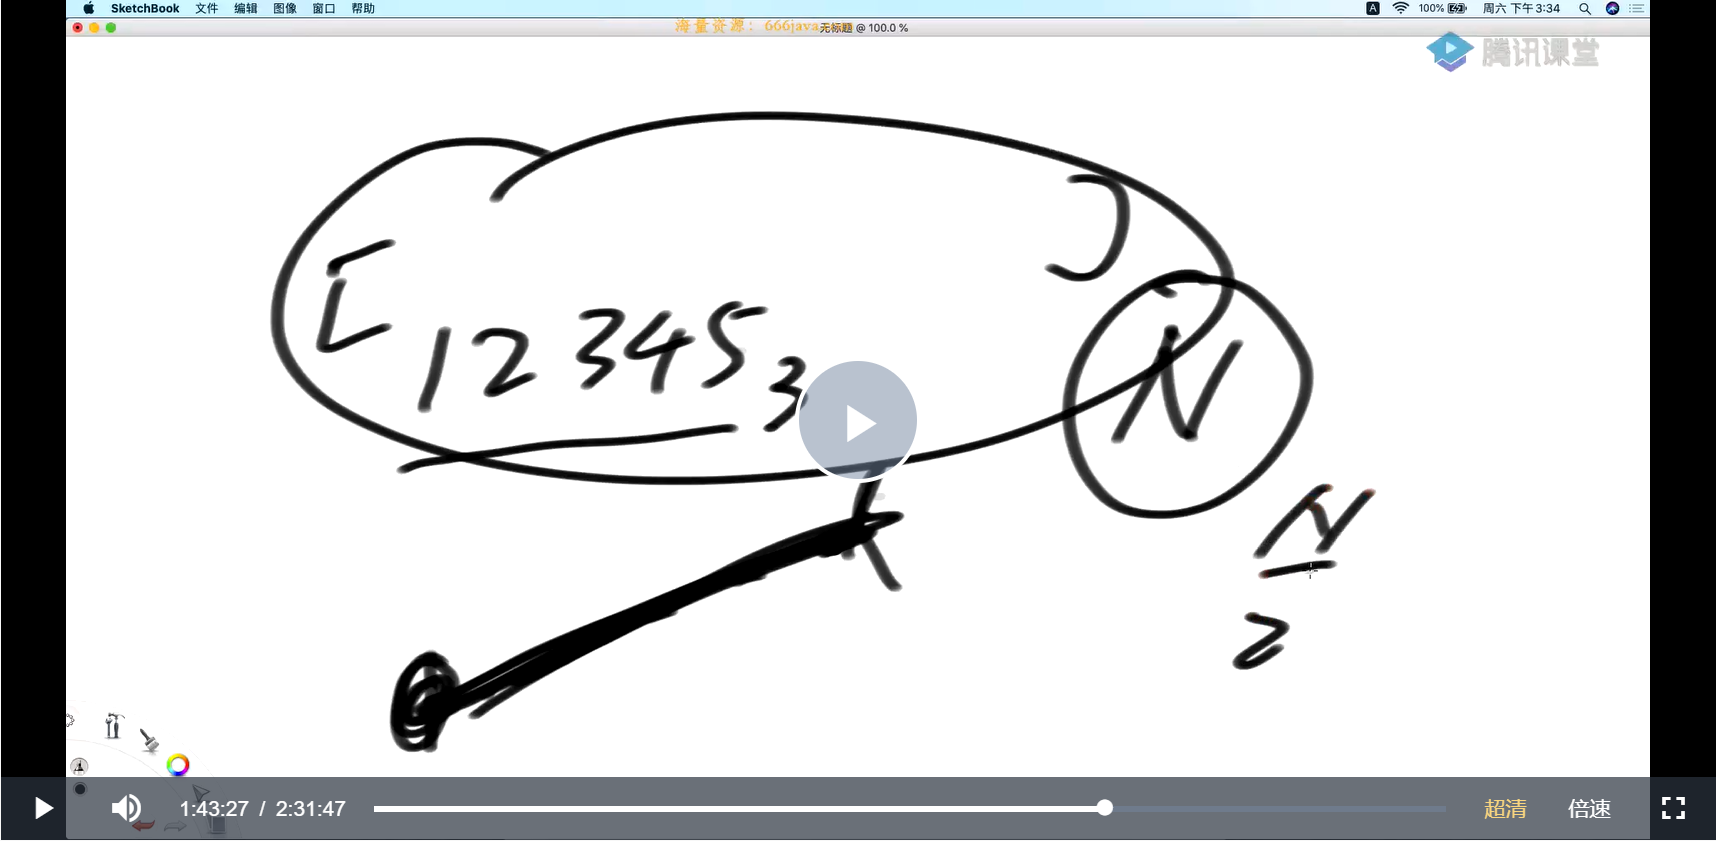 SketchBook 文件 编辑 图像 窗口 帮助 A 100% 周六 下午3:34
海量资源：666java 无标题 @ 100.0 %
腾讯课堂
[ ]
12345 3
N
k
N
2
1:43:27 / 2:31:47 超清 倍速